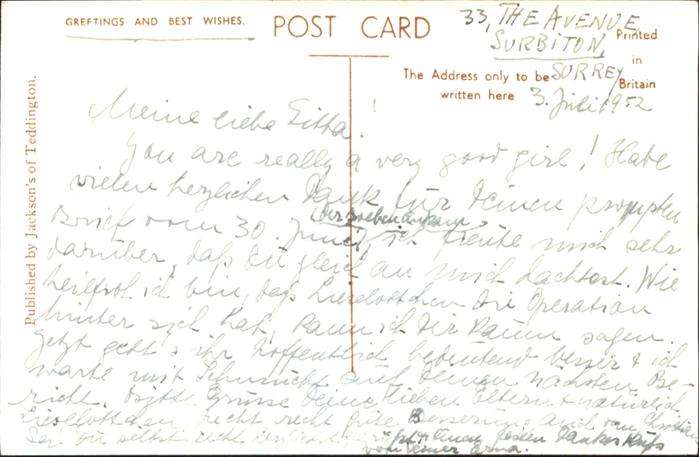 GREETINGS AND BEST WISHES.
POST CARD
33, THE AVENUE
SURBITON,
SURREY
3. Juli 1952
Printed
in
Britain
The Address only to be
written here
Published by Jackson's of Teddington.
Meine liebe Gitta!
You are really a very good girl! Habe
vielen herzlichen Dank für Deinen prompten
Brief vom 30. Juni, der soeben ankam, ich freute mich sehr
darüber, daß du gleich an mich dachtest. Wie
heilfroh ich bin, daß Lieselottchen die Operation
hinter sich hat, kann ich Dir kaum sagen.
Jetzt geht's ihr hoffentlich bedeutend besser & ich
warte mit Sehnsucht auf Deinen nächsten Be-
richt. Bitte grüsse Deine lieben Eltern & natürlich
Lieselottchen recht recht gute Besserung auch von
Sei Du selbst einen festen Dankes Kuss
von Deiner